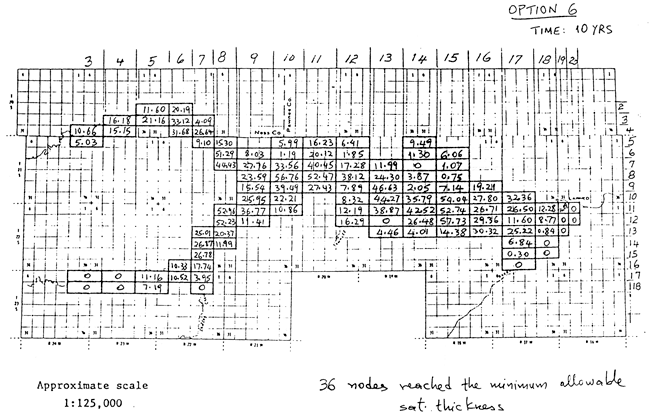 OPTION 6
TIME: 10 YRS
3 4 5 6 7 8 9 10 11 12 13 14 15 16 17 18 19 20
11.60 20.19
2
16.18 21.16 33.12 4.09
3
10.66 15.15 31.68 26.64 Ness Co.
4
5.03 9.10 15.30 5.99 16.23 6.41 9.49
5
51.29 8.03 1.19 20.12 1.85 9.30 6.06
6
27.76 33.56 40.45 17.28 11.99 0 1.07
7
23.59 56.76 52.47 38.12 24.30 3.87 0.75
8
15.54 39.49 27.43 7.89 46.63 2.05 7.14 19.21
9
25.95 22.21 8.32 44.27 35.79 54.04 27.80 32.36
10
52.96 36.77 10.86 12.19 38.87 42.52 52.74 26.71 26.50 12.28 0
11
52.23 11.41 16.29 0 26.48 57.73 29.36 11.60 8.77 0 0
12
25.01 20.37 4.46 4.01 14.38 30.32 25.22 0.84 0
13
26.87 11.99 6.84 0
14
26.78 0.30 0
15
10.33 17.74 0
16
0 0 11.16 10.52 3.95
17
0 0 7.19 0
118
R 24 W R 23 W R 22 W R 21 W R 20 W
Approximate scale
1:125,000
36 nodes reached the minimum allowable
sat. thickness